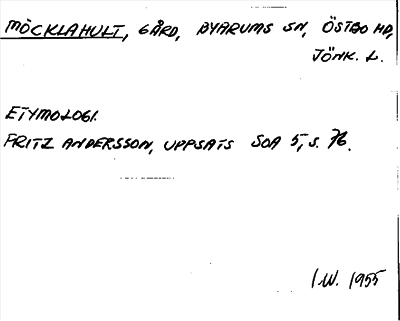 MÖCKLAHULT, GÅRD, BYARUMS SN, ÖSTBO HD,
JÖNK. L.
ETYMOLOGI.
FRITZ ANDERSSON, UPPSATS SOA 5, S. 76.
I.W. 1955